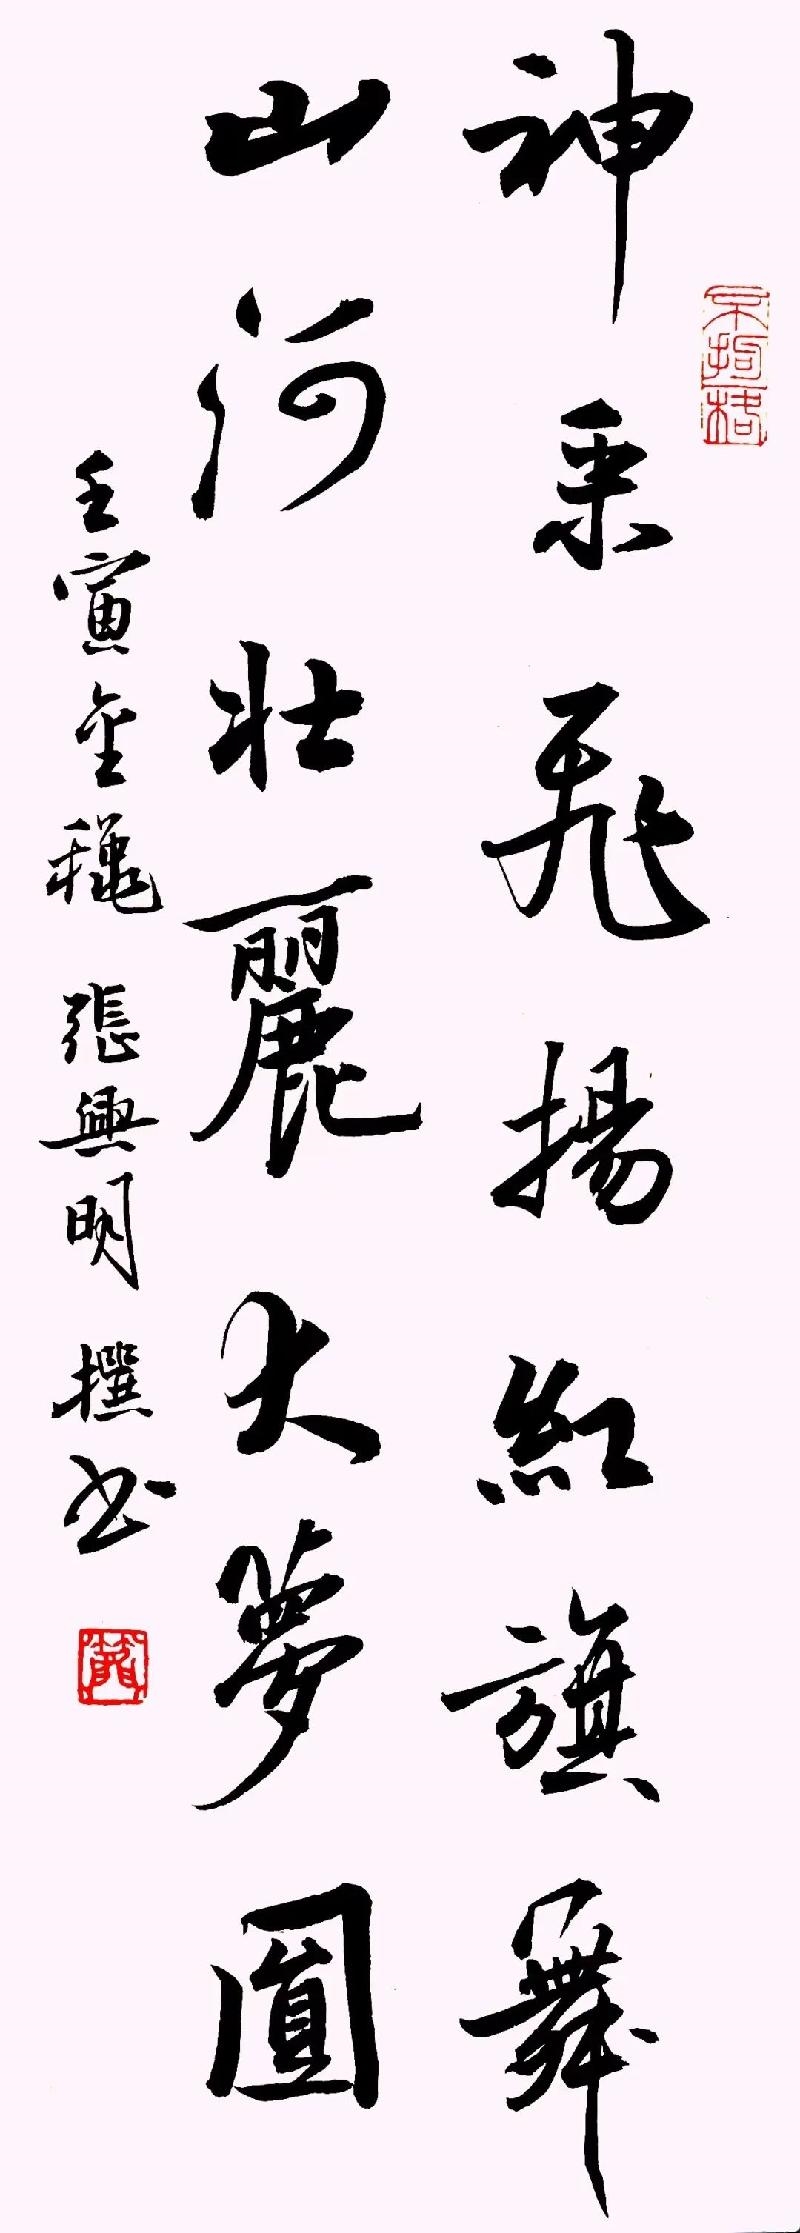 神采飛揚紅旗舞
山河壯麗大夢圓
壬寅金穐 張興明 撰书
不拘格